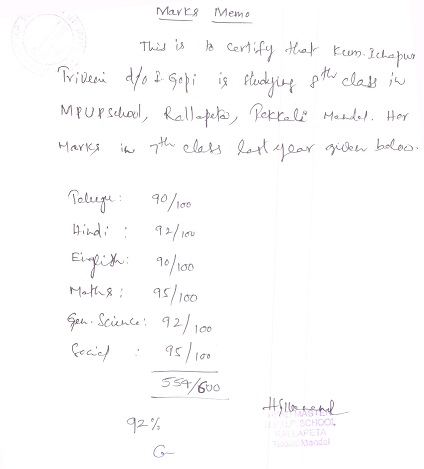 Marks Memo
This is to certify that Kum. Ichapur
Triveni d/o I. Gopi is studying 8th class in
MPUP School, Rallapeta, Tekkali Mandal. Her
Marks in 7th class last year given below.
Telugu: 90/100
Hindi : 92/100
English: 90/100
Maths: 95/100
Gen. Science: 92/100
Social : 95/100
554/600
92%
HEADMASTER
M.P.U.P. SCHOOL
RALLAPETA
Mandal